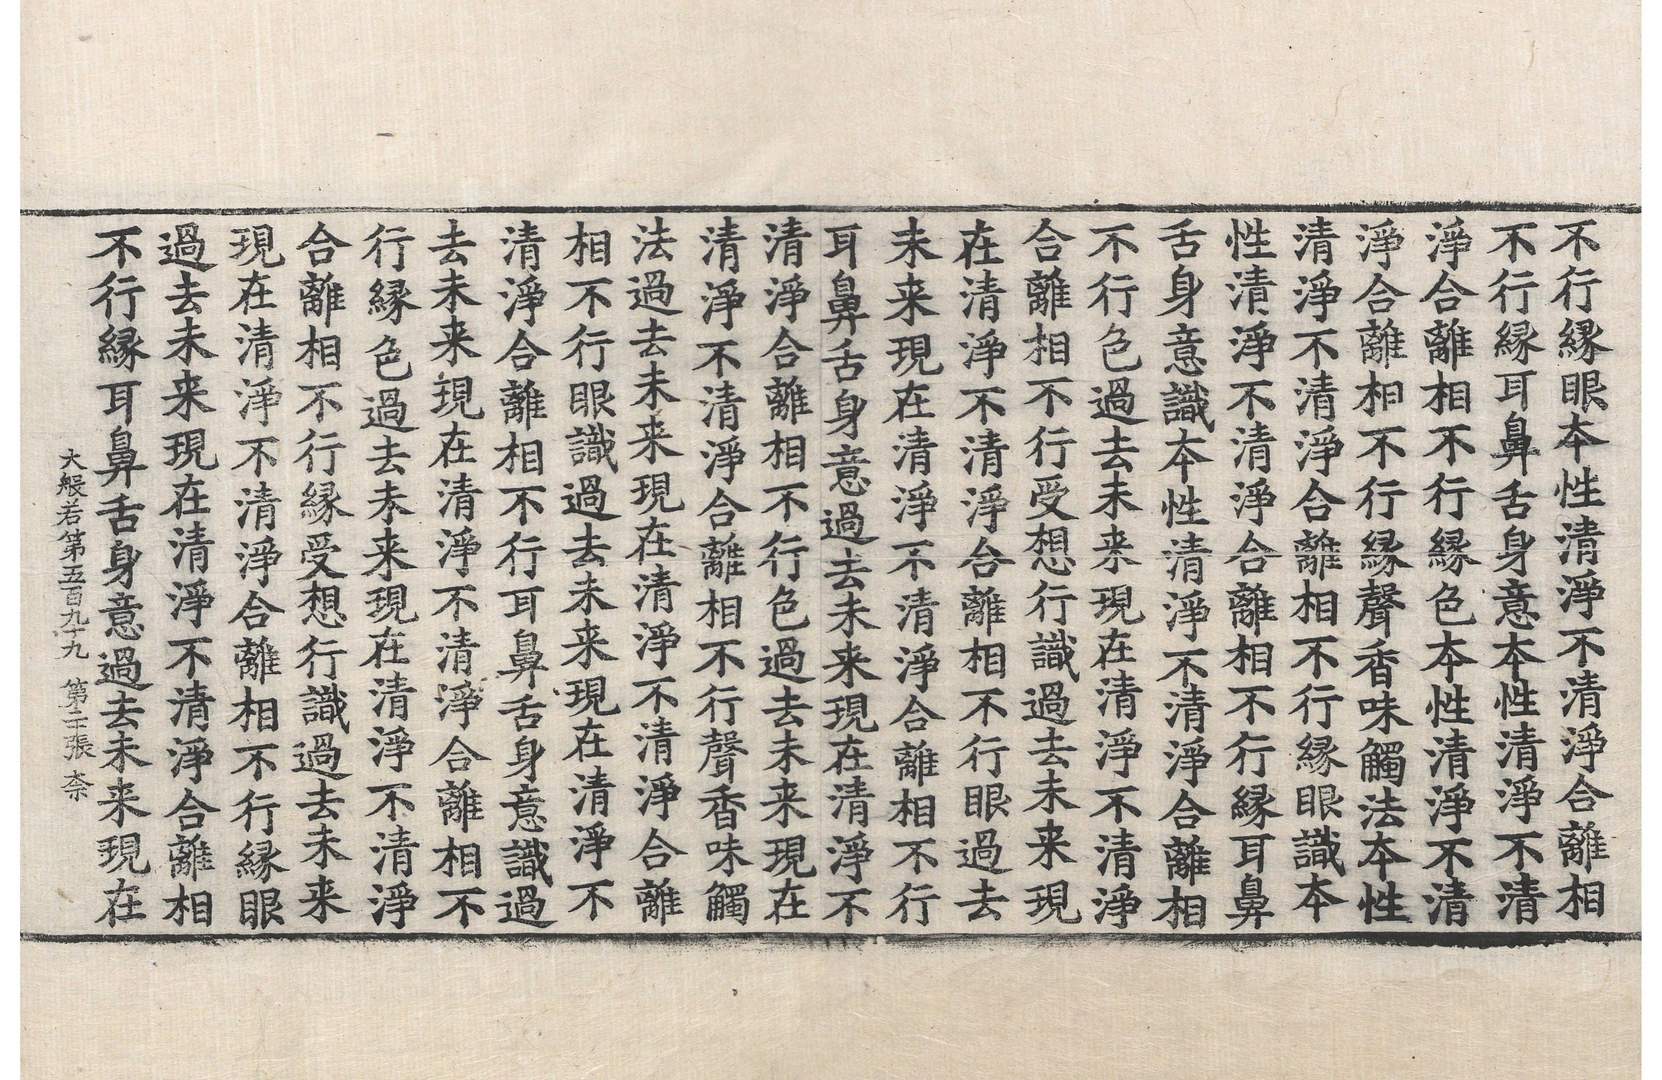 不行縁眼本性清淨不清淨合離相
不行縁耳鼻舌身意本性清淨不清
淨合離相不行縁色本性清淨不清
淨合離相不行縁聲香味觸法本性
清淨不清淨合離相不行縁眼識本
性清淨不清淨合離相不行縁耳鼻
舌身意識本性清淨不清淨合離相
不行色過去未来現在清淨不清淨
合離相不行受想行識過去未来現
在清淨不清淨合離相不行眼過去
未来現在清淨不清淨合離相不行
耳鼻舌身意過去未来現在清淨不
清淨合離相不行色過去未来現在
清淨不清淨合離相不行聲香味觸
法過去未来現在清淨不清淨合離
相不行眼識過去未来現在清淨不
清淨合離相不行耳鼻舌身意識過
去未来現在清淨不清淨合離相不
行縁色過去未来現在清淨不清淨
合離相不行縁受想行識過去未来
現在清淨不清淨合離相不行縁眼
過去未来現在清淨不清淨合離相
不行縁耳鼻舌身意過去未来現在
大般若第五百九十九 第二張 柰